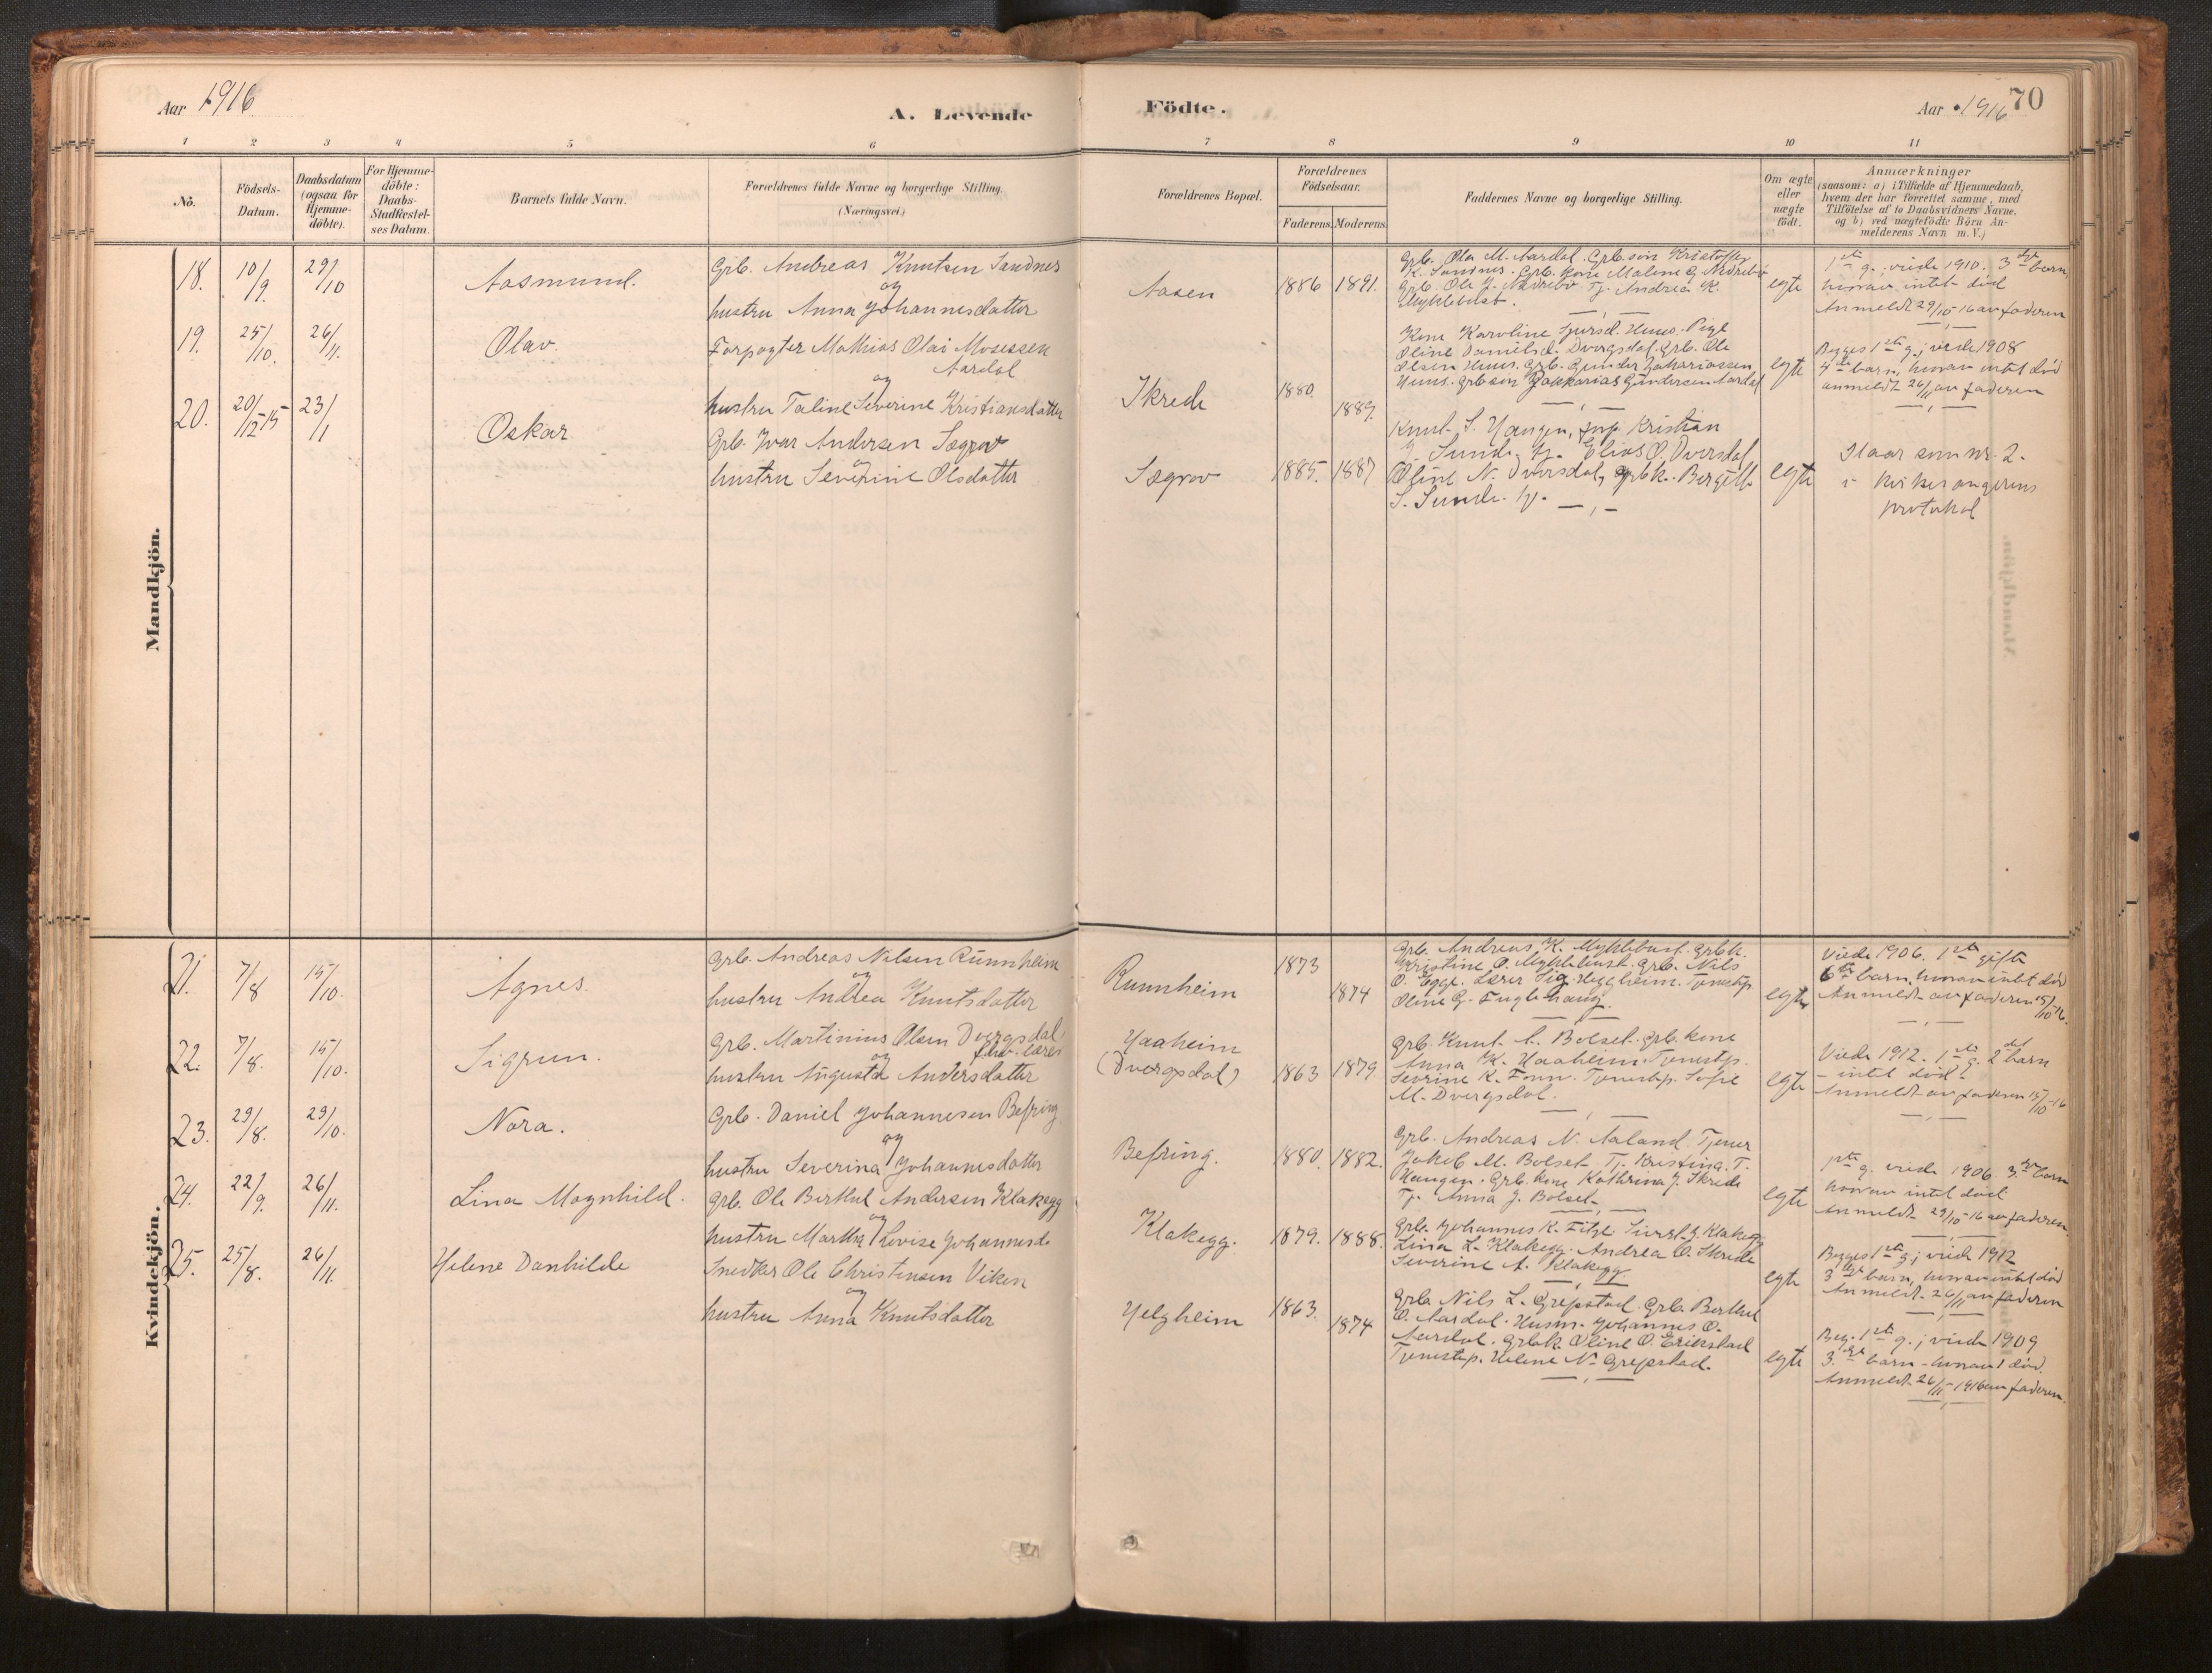 Aar 1916
A. Levende
Födte.
Aar 1916
70
1 2 3 4 5 6 7 8 9 10 11
No.
Födsels-Datum.
Daabsdatum (ogsaa for Hjemme-döbte).
For Hjemme-döbte: Daabs-Stadfæstel-ses Datum.
Barnets fulde Navn.
Forældrenes fulde Navne og borgerlige Stilling. (Næringsvei.)
Forældrenes Bopæl.
Forældrenes Födselsaar.
Faderens. Moderens.
Faddernes Navne og borgerlige Stilling.
Om ægte eller uægte födt.
Anmærkninger
(saasom: a) i Tilfælde af Hjemmedaab,
hvem der har forrettet samme, med
Tilföielse af to Daabsvidners Navne,
og b) ved uægtefödte Börn An-
melderens Navn m. V.)
Mandkjön.
18. 10/9. 29/10 Aasmund.
Grb. Andreas Knutsen Sandnes
og
hustru Anna Johannesdatter
Aasen 1886 1891.
Grb. Ola M. Aardal. Grb.søn Kristoffer
K. Sandnes. Grb. kone Malene G. Nedrebø
Grb. Ole J. Nedrebø Tj. Andrea K.
Myklebust.
egte
1ste g.; viede 1910. 3dje barn,
hvorav intet død
Anmeldt 29/10-16 av faderen
19. 25/10. 26/11. Olav.
Forpagter Mathias Olai Mosessen
Aardal
og
hustru Taline Severine Kristiansdatter
Skrede 1880. 1889.
Kone Karoline Huus. Pige
Oline Danielsd. Dvergsdal. Grb. Ole
Olsen Huus. Grb. Gunder Zakariassen
Huus. Grb søn Zakkarias Gundersen Aardal
egte
Begges 1ste g.; viede 1908
4de barn, hvorav intet død
anmeldt 26/11 av faderen
20. 20/12-15 23/1 Oskar
Grb. Ivar Andersen Søgrov
og
hustru Severine Olsdatter
Søgrov 1885. 1887
Knut S. Haugen, Kristian
J. Sunde. Elias O. Dversdal
Oline N. Dversdal, grbk. Bergitte
S. Sunde. Hj.
egte
Staar som nr. 2.
i kirkesangerens
protokol
Kvindekjön.
21. 7/8 15/10. Agnes.
Grb. Andreas Nilsen Runnheim
og
hustru Andrea Knutsdatter
Runnheim 1873 1874
Grb. Andreas K. Myklebust. Grbk.
Kristine O. Myklebust. Grb. Nils
O. Egge. Lærer Sig. Heggheim. Tjenestp.
Oline G. Fuglehaug.
egte
Viede 1906. 1ste gifte
6te barn, hvorav intet død
Anmeldt av faderen 15/10-16.
22. 7/8. 15/10. Sigrun.
Grb. Martinius Olsen Dvergsdal,
fhv. lærer
og
hustru Augusta Andersdatter
Haaheim
(Dvergsdal) 1863 1879
Grb. Knut A. Bolset. Grb. kone
Anna K. Haaheim. Tjenestp.
Severine K. Fonn. Tjenestp. Sofie
M. Dvergsdal.
egte
Viede 1912. 1ste g. 2det barn
- intet død.
Anmeldt av faderen 15/10-16
23. 29/8. 29/10. Nora.
Grb. Daniel Johannesen Befring
og
hustru Severina Johannesdatter
Befring. 1880. 1882.
Grb. Andreas N. Aaland. Tjener
Jakob M. Bolset. Tj. Kristina T.
Haugen. Grb. kone Kathrina J. Skrede
Tj. Anna J. Bolset.
egte
1ste g. viede 1906. 3dje barn
hvorav intet død
Anmeldt 29/10-16 av faderen
24. 22/9. 26/11. Lina Magnhild.
Grb. Ole Berthel Andersen Klakegg
og
hustru Martha Lovise Johannesd.
Klakegg. 1879. 1888.
Grb. Johannes K. Fitje Sivert J. Klakegg
Lina L. Klakegg. Andrea O. Skrede
Severine A. Klakegg.
egte
Begges 1ste g.; viede 1912
3dje barn, hvorav intet død
Anmeldt 26/11 av faderen
25. 25/8. 26/11. Helene Danhilde
Snedker Ole Christensen Viken
og
hustru Anna Knutsdatter
Helgheim 1863. 1874
Grb. Nils L. Grepstad. Grb. Berthel
O. Aardal. Husm. Johannes O.
Aardal. Grbk. Oline O. Erikstad
Tjenestp. Helene N. Grepstad.
egte
Beg. 1ste g.; viede 1909
3dje barn - hvorav 1 død.
Anmeldt 26/11-1916 av faderen.